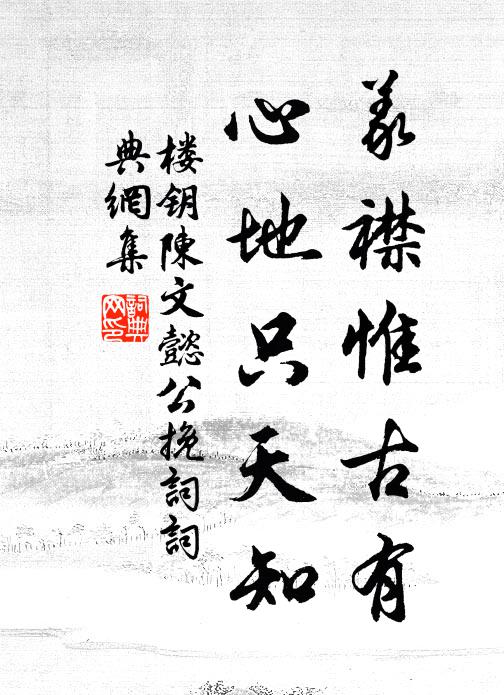 義襟惟古有
心地只天知
楼钥陳文懿公挽詞詞
典網集
詞典
网印